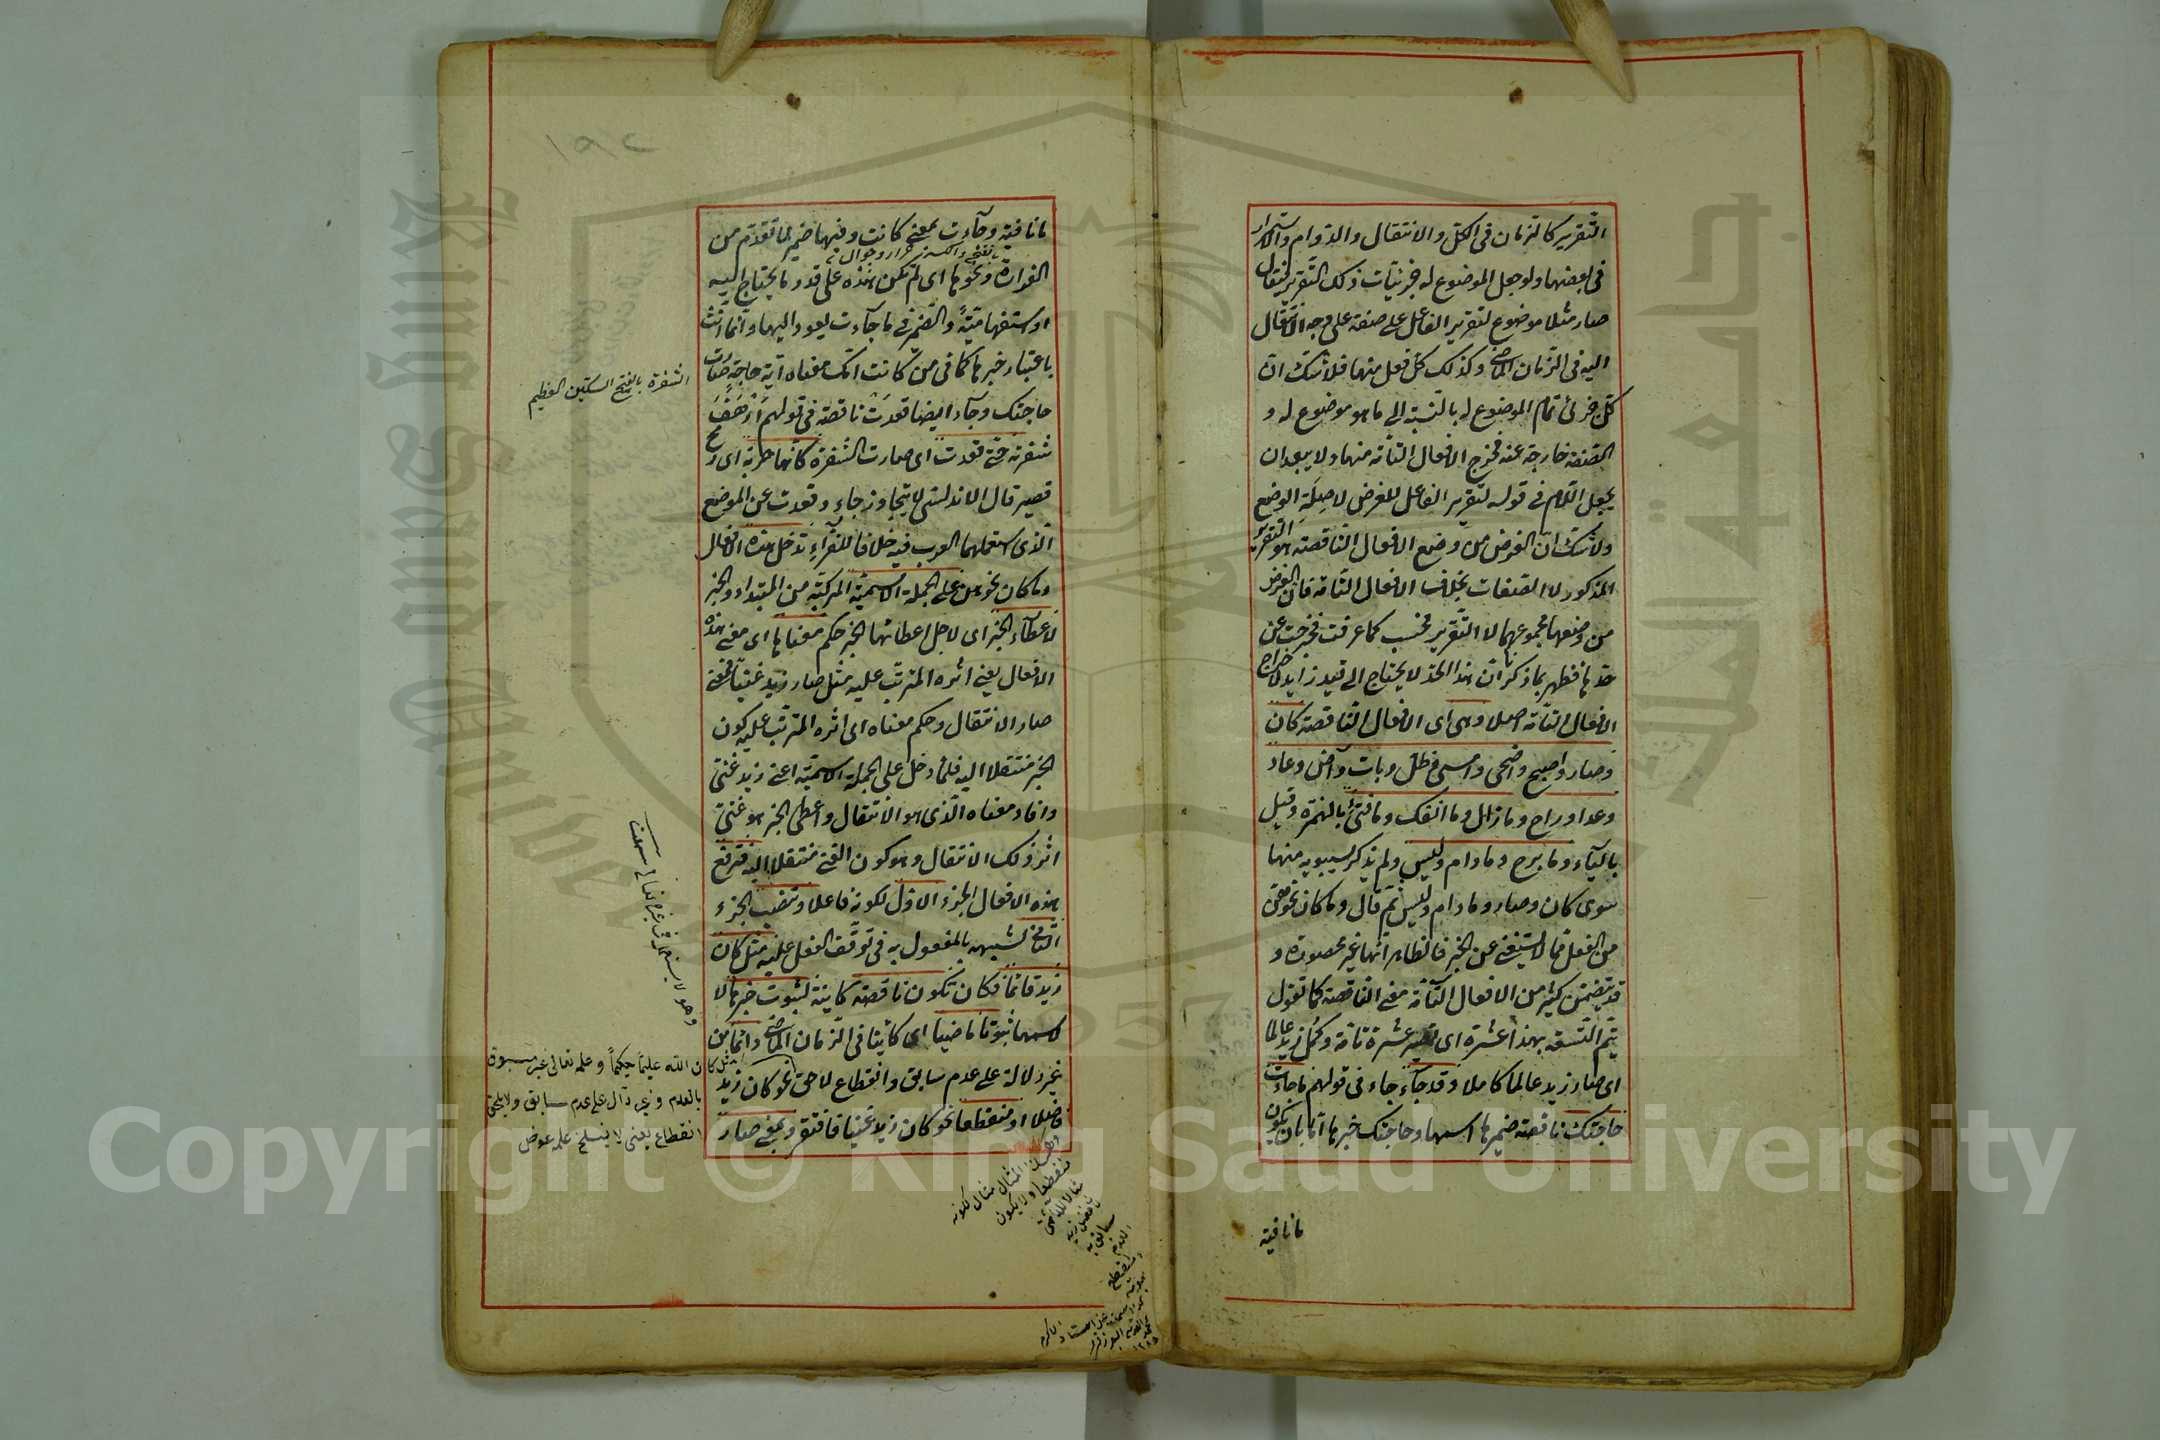 التقرير كالزمان فى الكل والانتقال والدوام والاستمرار
فى بعضها ولو جعل الموضوع له جزئيات ذلك التقرير فيقال
صار مثلا موضوع لتقرير الفاعل على صفة على وجه الانتقال
اليه فى الزمان الماضى وكذلك كل فعل منها فلا شك ان
كل جزئ تمام الموضوع له بالنسبة الى ما هو موضوع له و
الصفة خارجة عنه فخرج الافعال التامة منها ولا يبعد ان
يجعل اللام فى قوله لتقرير الفاعل للغرض لا صلة الوضع
ولا شك ان الغرض من وضع الافعال الناقصة هو التقرير
المذكور لا الصفات بخلاف الافعال التامة فان الغرض
من وضعها مجموعهما لا التقرير فحسب كما عرفت فخرجت عن
حدها فظهر بما ذكرنا ان هذا الحد لا يحتاج الى قيد زايد لاخراج
الافعال التامة اصلا وهى اى الافعال الناقصة كان
وصار واصبح واضحى وامسى وظل وبات وآض وعاد
وغدا وراح وما زال وما انفك وما فتئ بالهمزة وقيل
بالياء وما برح وما دام وليس ولم يذكر سيبويه منها
سوى كان وصار وما دام وليس ثم قال وما كان نحوهن
من الفعل مما لا يستغنى عن الخبر فالظاهر انها غير محصورة و
قد يتضمن كثير من الافعال التامة معنى الناقصة كما تقول
يتم التسعة بهذا عشرة اى تصير عشرة تامة وكمل زيد عالما
اى صار زيد عالما كاملا وقد جاء جاء فى قولهم ما جاءت
حاجتك ناقصة ضميرها اسمها وحاجتك خبرها اما بان يكون
ما نافية
١٩٢
ما نافية وجاءت بمعنى كانت وفيها ضمير لما تقدم من
الغرارة ونحوها اى لم تكن هذه على قدر ما يحتاج اليه
او استفهامية والضمير فى ما جاءت يعود اليها وانما انث
باعتبار خبرها كما فى من كانت امك معناه اية حاجة صارت
حاجتك وجاء ايضا قعدت ناقصة فى قولهم ارهف
شفرته حتى قعدت اى صارت الشفرة كانها حربة اى رمح
قصير قال الاندلسى لا يتجاوز جاء وقعدت عن الموضع
الذى استعملها العرب فيه خلافا للفراء تدخل هذه الافعال
وما كان نحوهن على الجملة الاسمية المركبة من المبتداء والخبر
لاعطاء الخبر اى لاجل اعطائها الخبر حكم معناها اى معنى هذه
الافعال يعنى اثره المترتب عليه مثل صار زيد غنيا فمعنى
صار الانتقال وحكم معناه اى اثره المترتب عليه كون
الخبر منتقلا اليه فلما دخل على الجملة الاسمية اعنى زيد غنى
وافاد معناه الذى هو الانتقال واعطى الخبر هو غنى
اثر ذلك الانتقال وهو كون الغنى منتقلا اليه فترفع
هذه الافعال الجزء الاول لكونه فاعلا وتنصب الجزء
الثانى لشبهه بالمفعول به فى توقف الفعل عليه مثل كان
زيد قائما فكان تكون ناقصة كاينة لثبوت خبرها لا
لاسمها ثبوتا ماضيا اى كائنا فى الزمان الماضى دائما من
غير دلالة على عدم سابق وانقطاع لاحق نحو كان زيد
فاضلا او منقطعا نحو كان زيد غنيا فافتقر وبمعنى صار
الشفرة بالفتح السكين العظيم
مثل كان الله عليما حكيما وعلمه تعالى غير مسبوق
بالعدم
انقطاع يعنى
المثال مثال لكونه
منقطعا ولا يكون